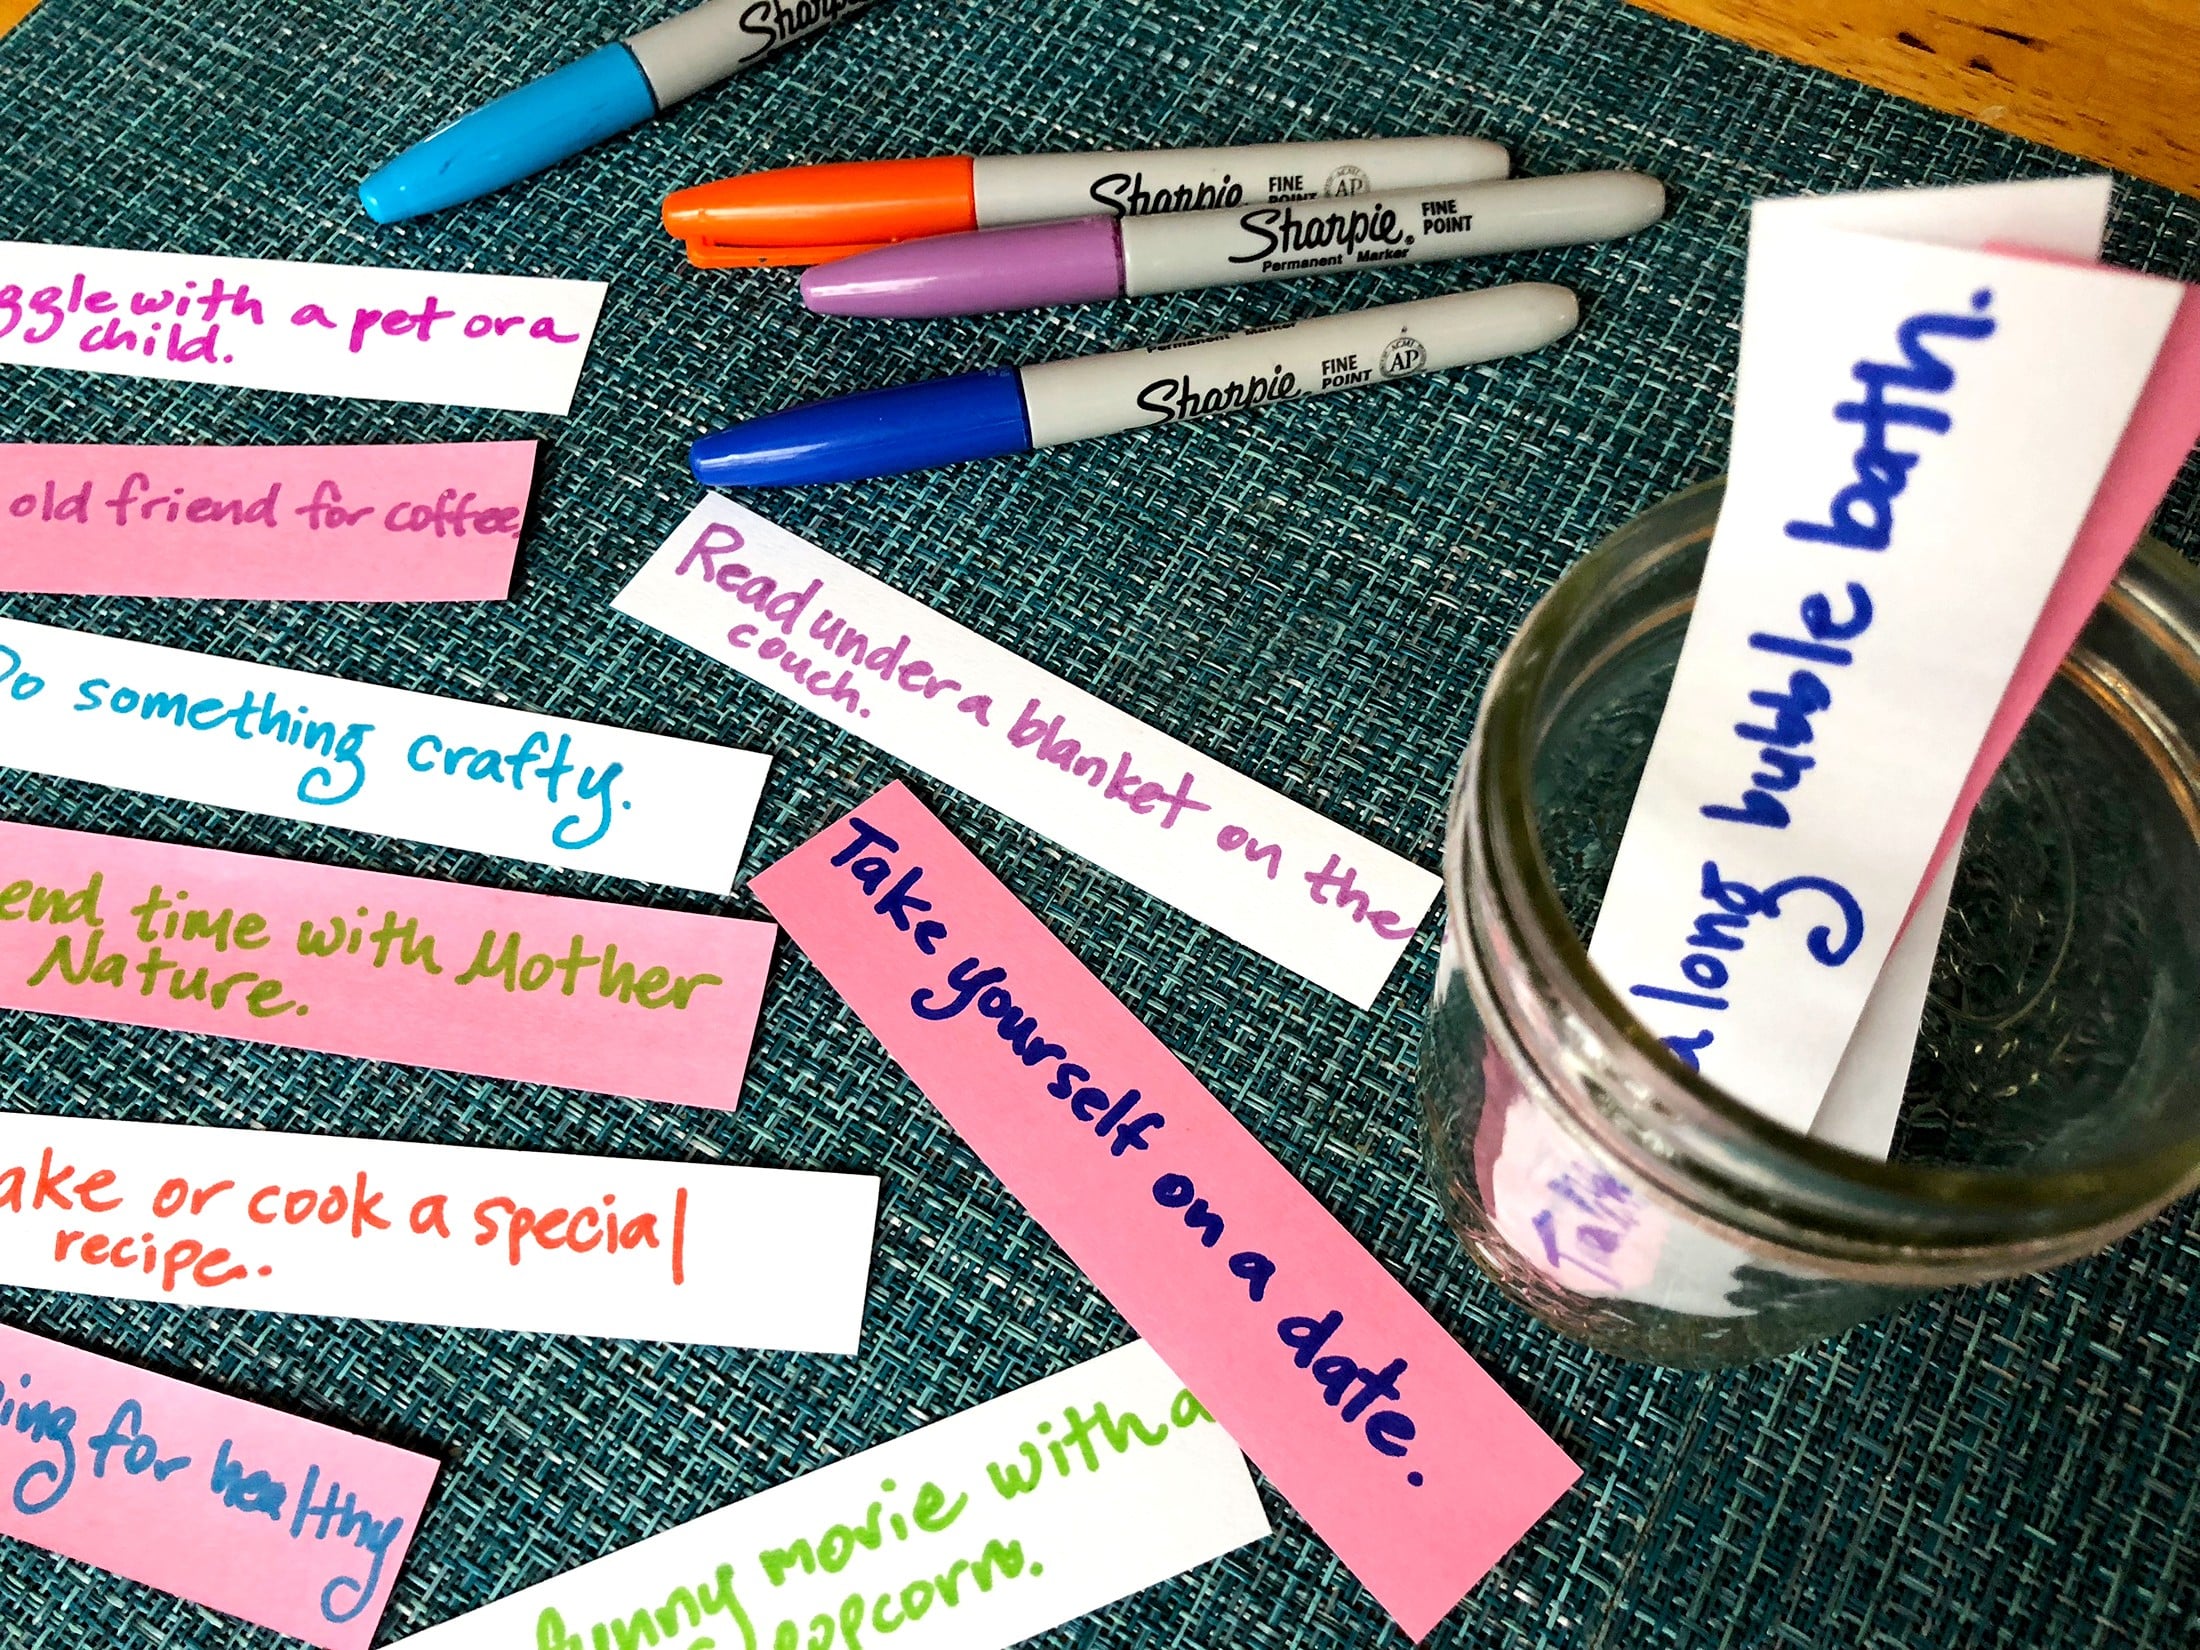 Sharpie
Sharpie
FINE
POINT
AP
Sharpie
FINE
POINT
Permanent Marker
Permanent Marker
Sharpie
FINE
POINT
ACMI
AP
ggle with a pet or a
child.
old friend for coffee.
Do something crafty.
end time with Mother
Nature.
ake or cook a special
recipe.
ing for healthy
Read under a blanket on the
couch.
Take yourself on a date.
funny movie with a
popcorn.
a long bubble bath.